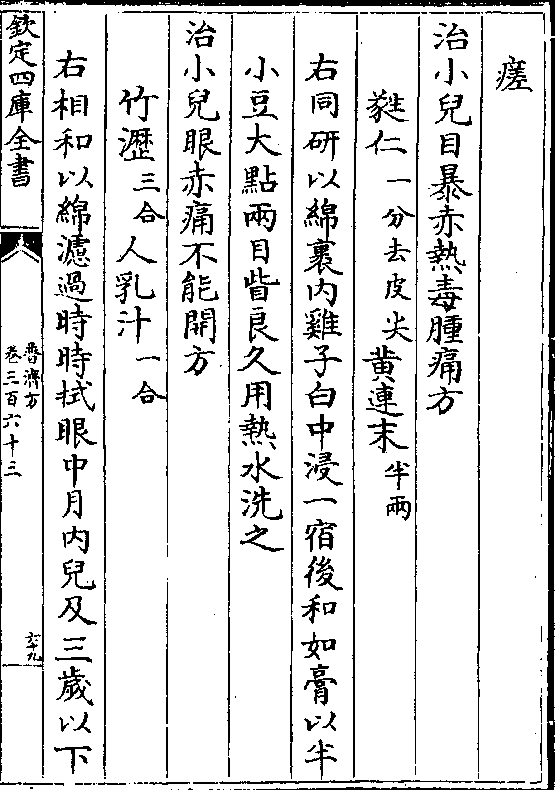 瘥
治小兒目暴赤熱毒腫痛方
蕤仁一分去皮尖黄連末半兩
右同研以綿裹内雞子白中浸一宿後和如膏以半
小豆大點兩目眥良久用熱水洗之
治小兒眼赤痛不能開方
竹瀝三合人乳汁一合
右相和以綿濾過時時拭眼中月内兒及三歲以下
欽定四庫全書
普濟方
卷三百六十三
六十九